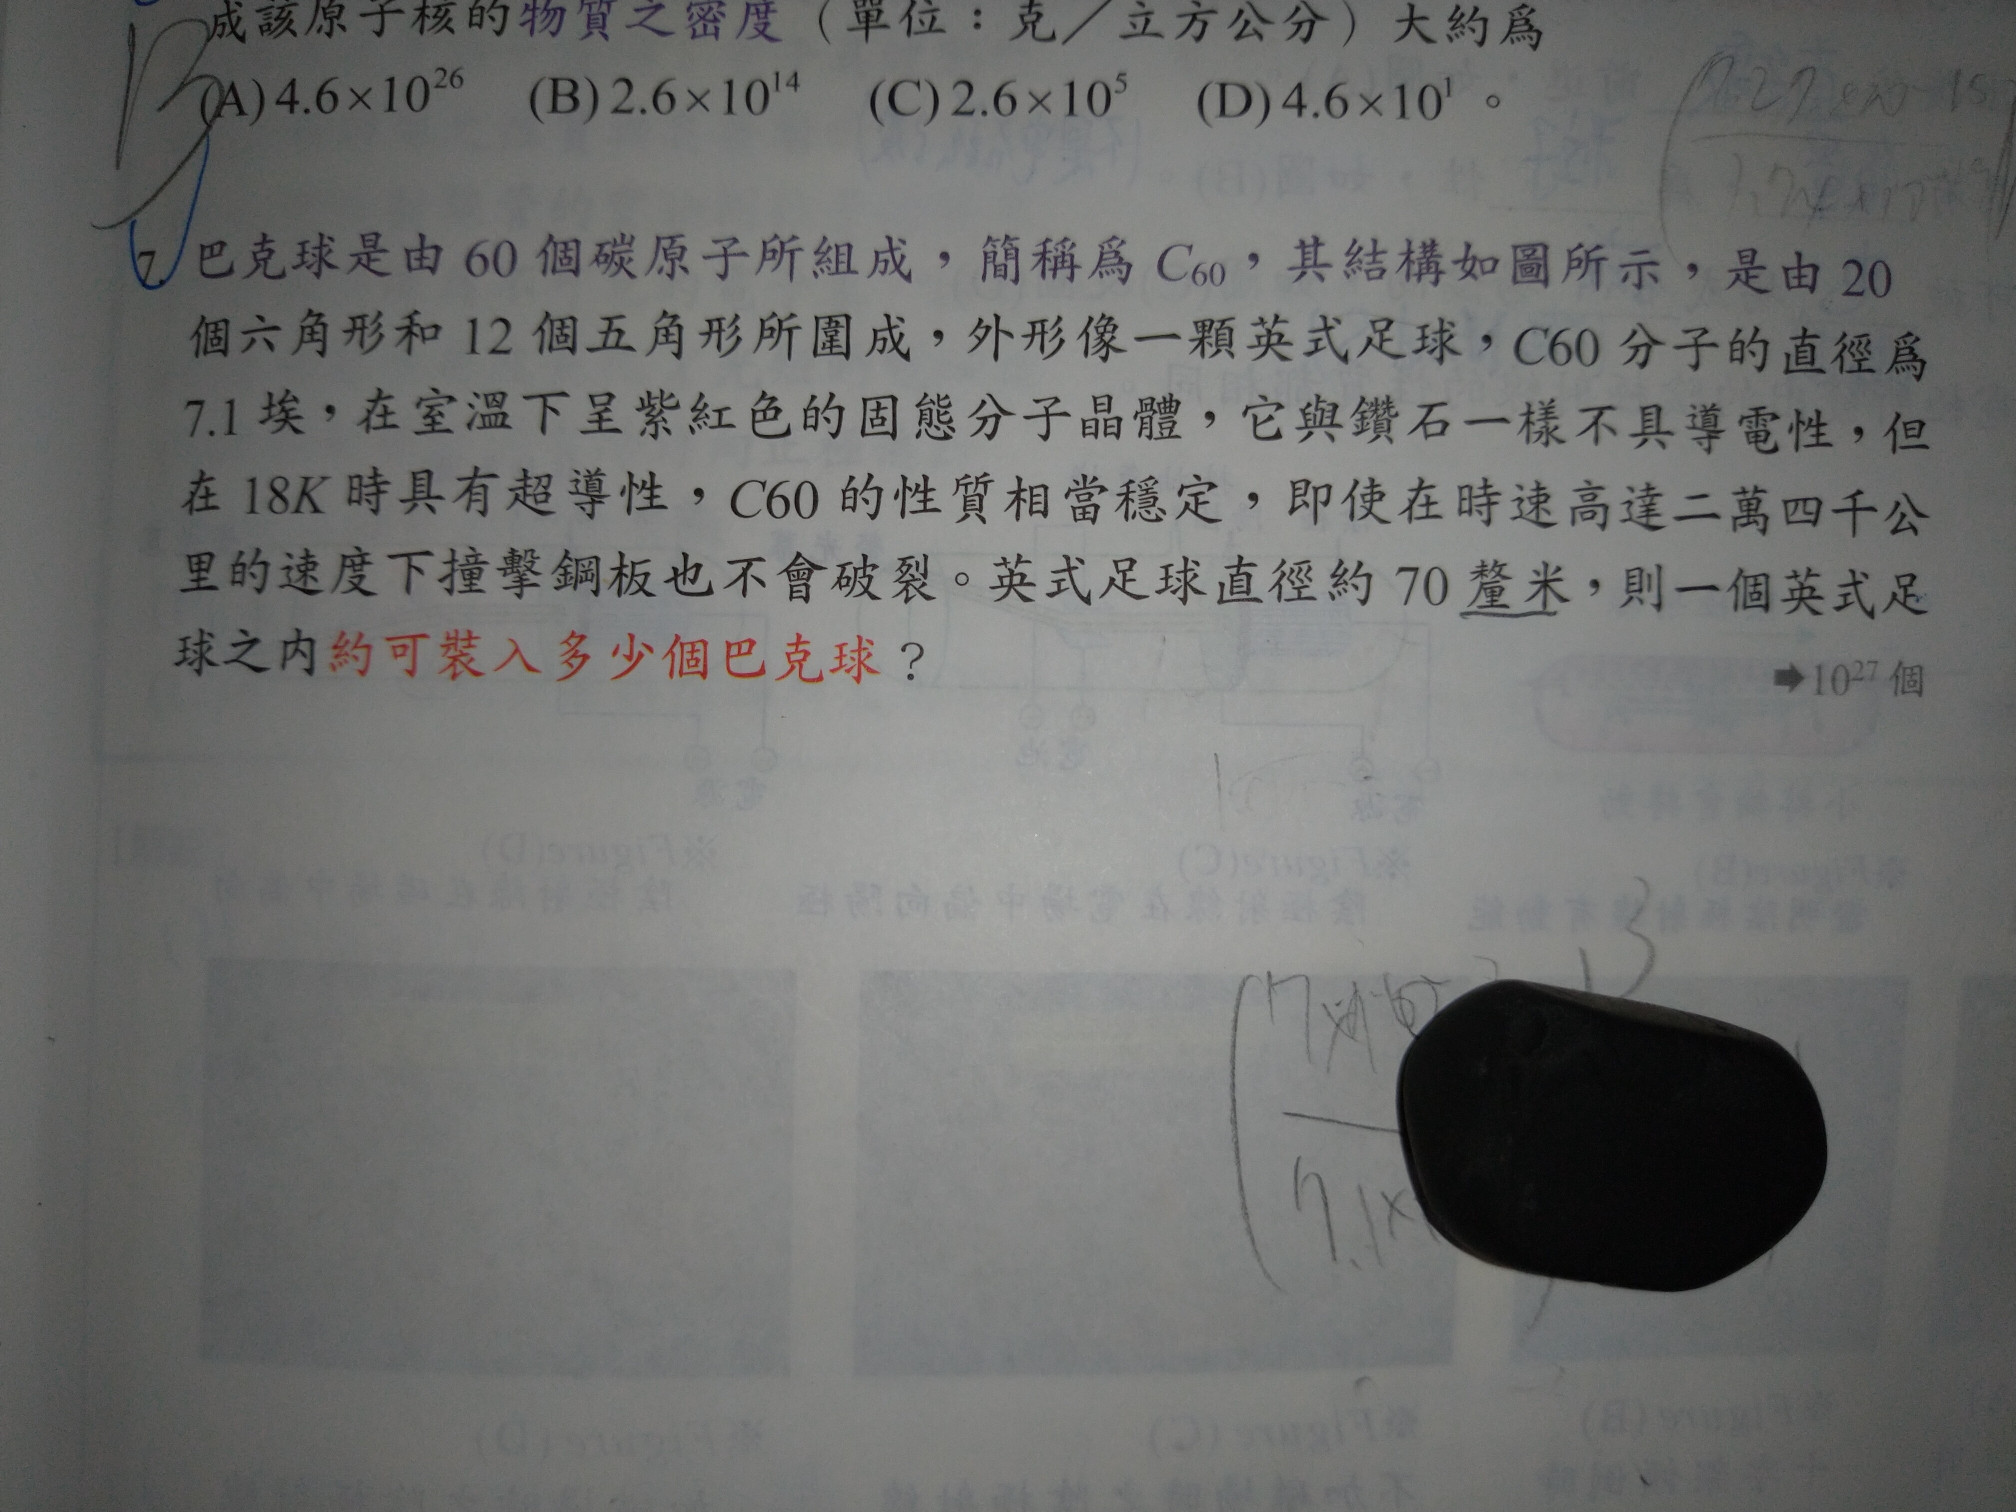 成該原子核的物質之密度（單位：克／立方公分）大約爲
(A) 4.6×10²⁶ (B) 2.6×10¹⁴ (C) 2.6×10⁵ (D) 4.6×10¹。
B
7. 巴克球是由 60 個碳原子所組成，簡稱爲 C₆₀，其結構如圖所示，是由 20
個六角形和 12 個五角形所圍成，外形像一顆英式足球，C60 分子的直徑爲
7.1 埃，在室溫下呈紫紅色的固態分子晶體，它與鑽石一樣不具導電性，但
在 18K 時具有超導性，C60 的性質相當穩定，即使在時速高達二萬四千公
里的速度下撞擊鋼板也不會破裂。英式足球直徑約 70 釐米，則一個英式足
球之內約可裝入多少個巴克球？
➡10²⁷ 個
7.1×